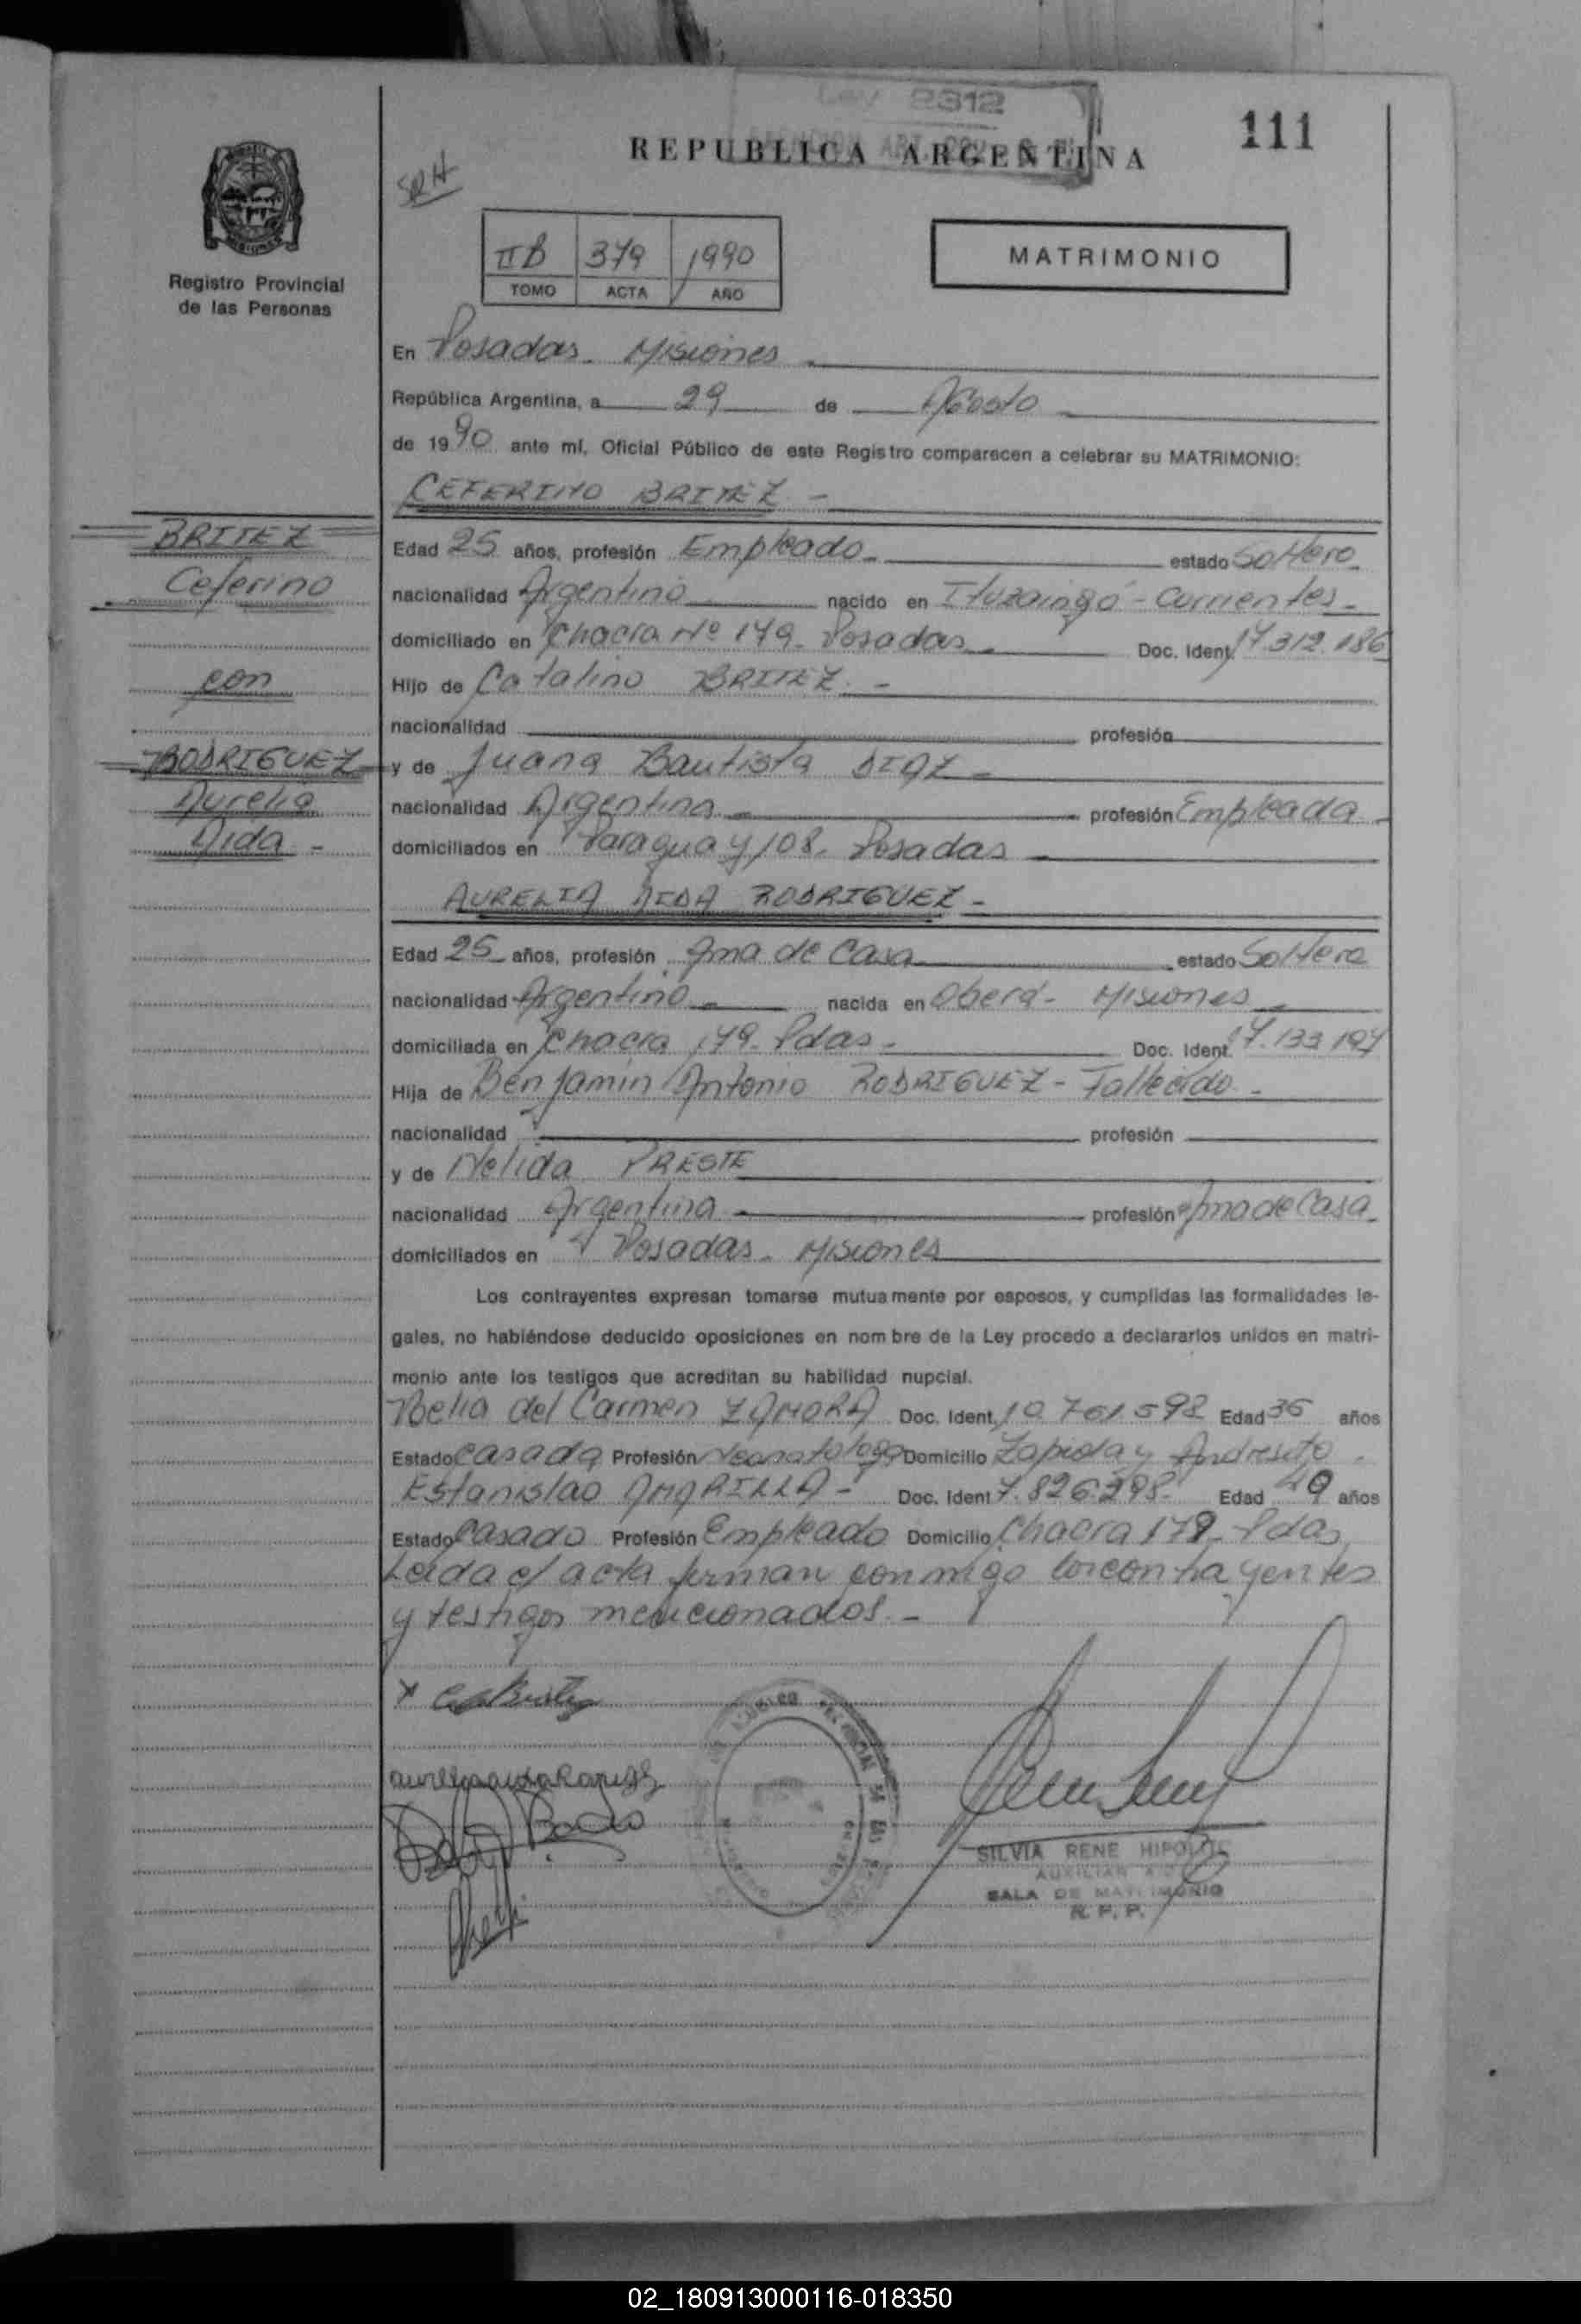 Ley 2312
111
REPUBLICA ARGENTINA
SRH
IIB 379 1990
TOMO ACTA AÑO
MATRIMONIO
Registro Provincial
de las Personas
En Posadas - Misiones
República Argentina, a 29 de Agosto
de 1990 ante mí, Oficial Público de este Registro comparecen a celebrar su MATRIMONIO:
CEFERINO BRITEZ -
BRITEZ
Ceferino
con
RODRIGUEZ
Aurelia
Aida -
Edad 25 años, profesión Empleado - estado Soltero -
nacionalidad Argentino nacido en Ituzaingó - Corrientes -
domiciliado en Chacra Nº 179 - Posadas - Doc. Ident. 17.312.186
Hijo de Catalino BRITEZ -
nacionalidad profesión
y de Juana Bautista DIAZ -
nacionalidad Argentina - profesión Empleada -
domiciliados en Paraguay 108 - Posadas -
AURELIA AIDA RODRIGUEZ -
Edad 25 años, profesión Ama de Casa estado Soltera
nacionalidad Argentina - nacida en Oberá - Misiones
domiciliada en Chacra 179 - Pdas - Doc. Ident. 17.133.197
Hija de Benjamín Antonio RODRIGUEZ - Fallecido -
nacionalidad profesión
y de Nelida PRESTE
nacionalidad Argentina profesión Ama de Casa
domiciliados en Posadas - Misiones
Los contrayentes expresan tomarse mutuamente por esposos, y cumplidas las formalidades le-
gales, no habiéndose deducido oposiciones en nombre de la Ley procedo a declararlos unidos en matri-
monio ante los testigos que acreditan su habilidad nupcial.
del Carmen ZAMORA Doc. Ident. 10.761.592 Edad 36 años
Estado Casada Profesión Neonatologa Domicilio Zapiola y Andresito -
Estanislao AMARILLA - Doc. Ident 7.826.298 Edad 40 años
Estado Casado Profesión Empleado Domicilio Chacra 179 - Pdas
Leida el acta firman conmigo los contrayentes
y testigos mencionados. -
SILVIA RENE HIPOLITO
AUXILIAR
SALA DE MATRIMONIO
R. P. P.
02_180913000116-018350